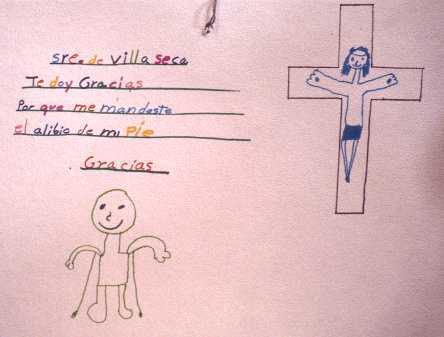 sre. de villa seca
Te doy Gracias
Por que me mandaste
el alibio de mi Pie
. Gracias